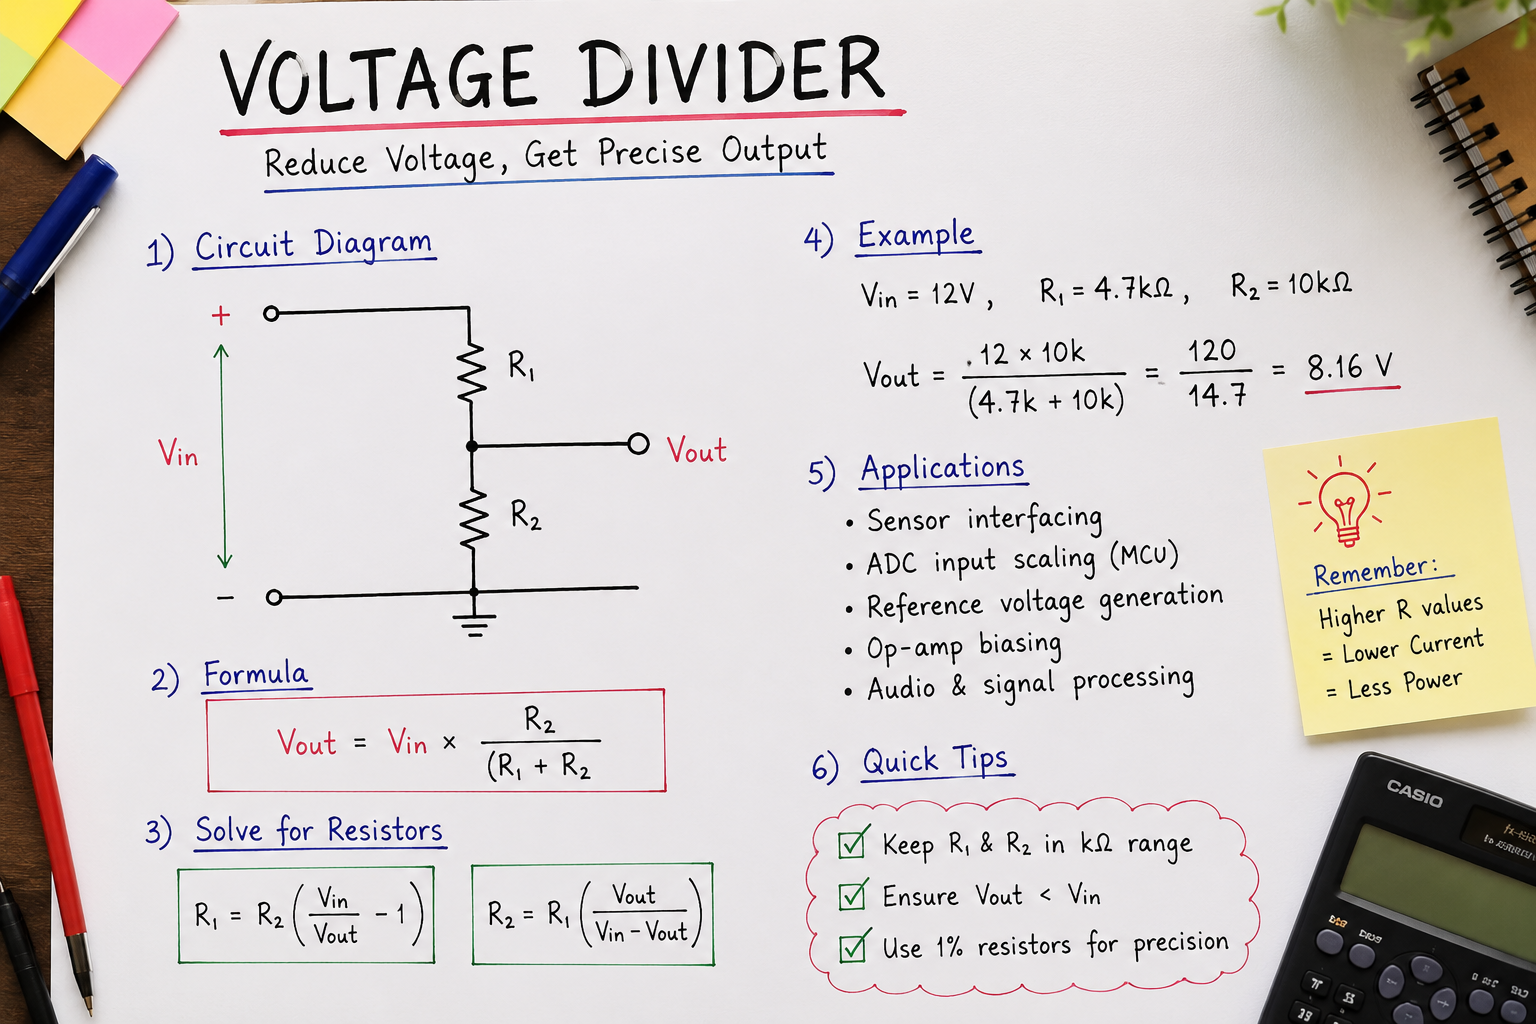 VOLTAGE DIVIDER
Reduce Voltage, Get Precise Output
1) Circuit Diagram
+
R₁
Vin
Vout
R₂
−
2) Formula
Vout = Vin × R₂ / (R₁ + R₂
3) Solve for Resistors
R₁ = R₂ (Vin / Vout − 1)
R₂ = R₁ (Vout / Vin − Vout)
4) Example
Vin = 12V , R₁ = 4.7kΩ , R₂ = 10kΩ
Vout = 12 × 10k / (4.7k + 10k) = 120 / 14.7 = 8.16 V
5) Applications
• Sensor interfacing
• ADC input scaling (MCU)
• Reference voltage generation
• Op-amp biasing
• Audio & signal processing
Remember:
Higher R values
= Lower Current
= Less Power
6) Quick Tips
Keep R₁ & R₂ in kΩ range
Ensure Vout < Vin
Use 1% resistors for precision
CASIO